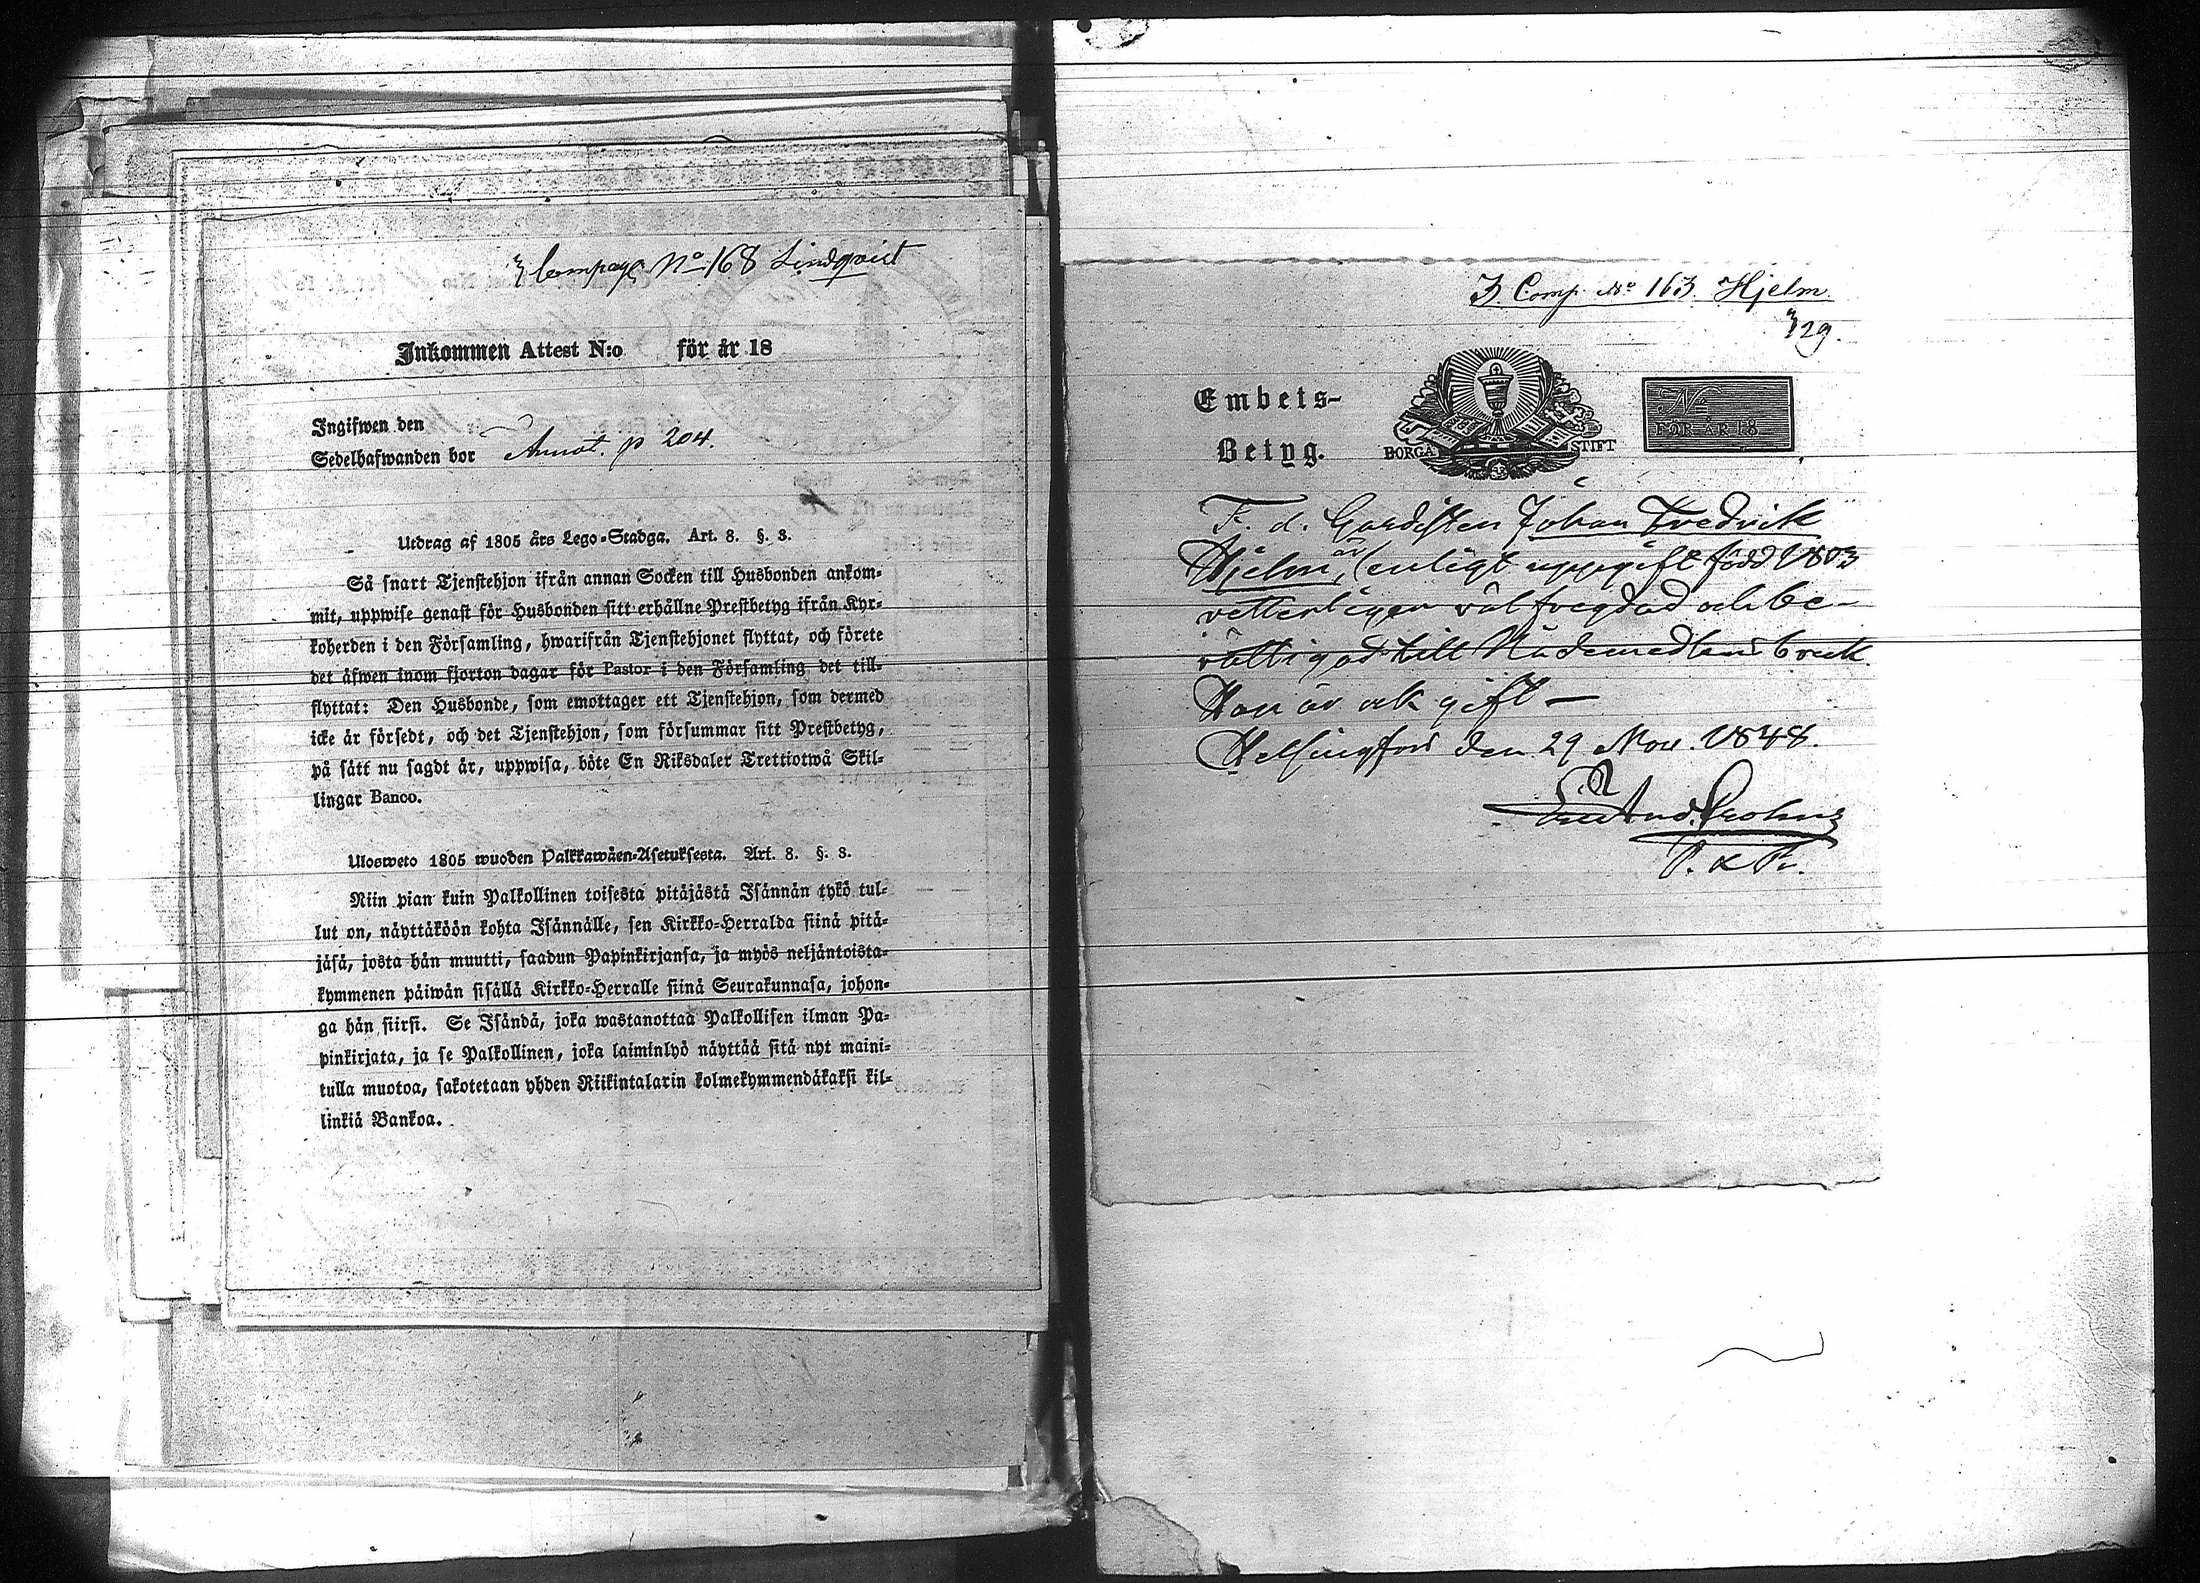 3 Compags No 168 Lindqvist
Inkommen Attest N:o för år 18
Ingifwen den
Sedelhafwanden bor Annot. p 204.
Utdrag af 1805 års Lego-Stadga. Art. 8. §. 3.
Så snart Tjenstehjon ifrån annan Socken till Husbonden ankom-
mit, uppwise genast för Husbonden sitt erhållne Prestbetyg ifrån Kyr-
koherden i den Församling, hwarifrån Tjenstehjonet flyttat, och förete
det äfwen inom fjorton dagar för Pastor i den Församling det till-
flyttat: Den Husbonde, som emottager ett Tjenstehjon, som dermed
icke är försedt, och det Tjenstehjon, som försummar sitt Prestbetyg,
på sätt nu sagdt är, uppwisa, böte En Riksdaler Trettiotwå Skil-
lingar Banco.
Ulosweto 1805 wuoden Palkkawäen-Asetuksesta. Art. 8. §. 3.
Niin pian kuin Palkollinen toisesta pitäjästä Isännän tykö tul-
lut on, näyttäköön kohta Isännälle, sen Kirkko-Herralda siinä pitä-
jäsä, josta hän muutti, saadun Papinkirjansa, ja myös neljäntoista-
kymmenen päiwän sisällä Kirkko-Herralle siinä Seurakunnasa, johon-
ga hän siirsi. Se Isändä, joka wastanottaa Palkollisen ilman Pa-
pinkirjata, ja se Palkollinen, joka laiminlyö näyttää sitä nyt maini-
tulla muotoa, sakotetaan yhden Riikintalarin kolmekymmendäkaksi kil-
linkiä Bankoa.
3. Comp. No 163. Hjelm
329.
Embets-
Betyg.
BORGÅ STIFT
No
FÖR ÅR 18
F. d. Gardisten Johan Fredrik
Hjelm, är (enligt uppgift född 1803
vetterligen väl fregdad och be-
rättigad till Nådemedlens bruk.
Han är ock gift —
Helsingfors den 29 Nov. 1848.